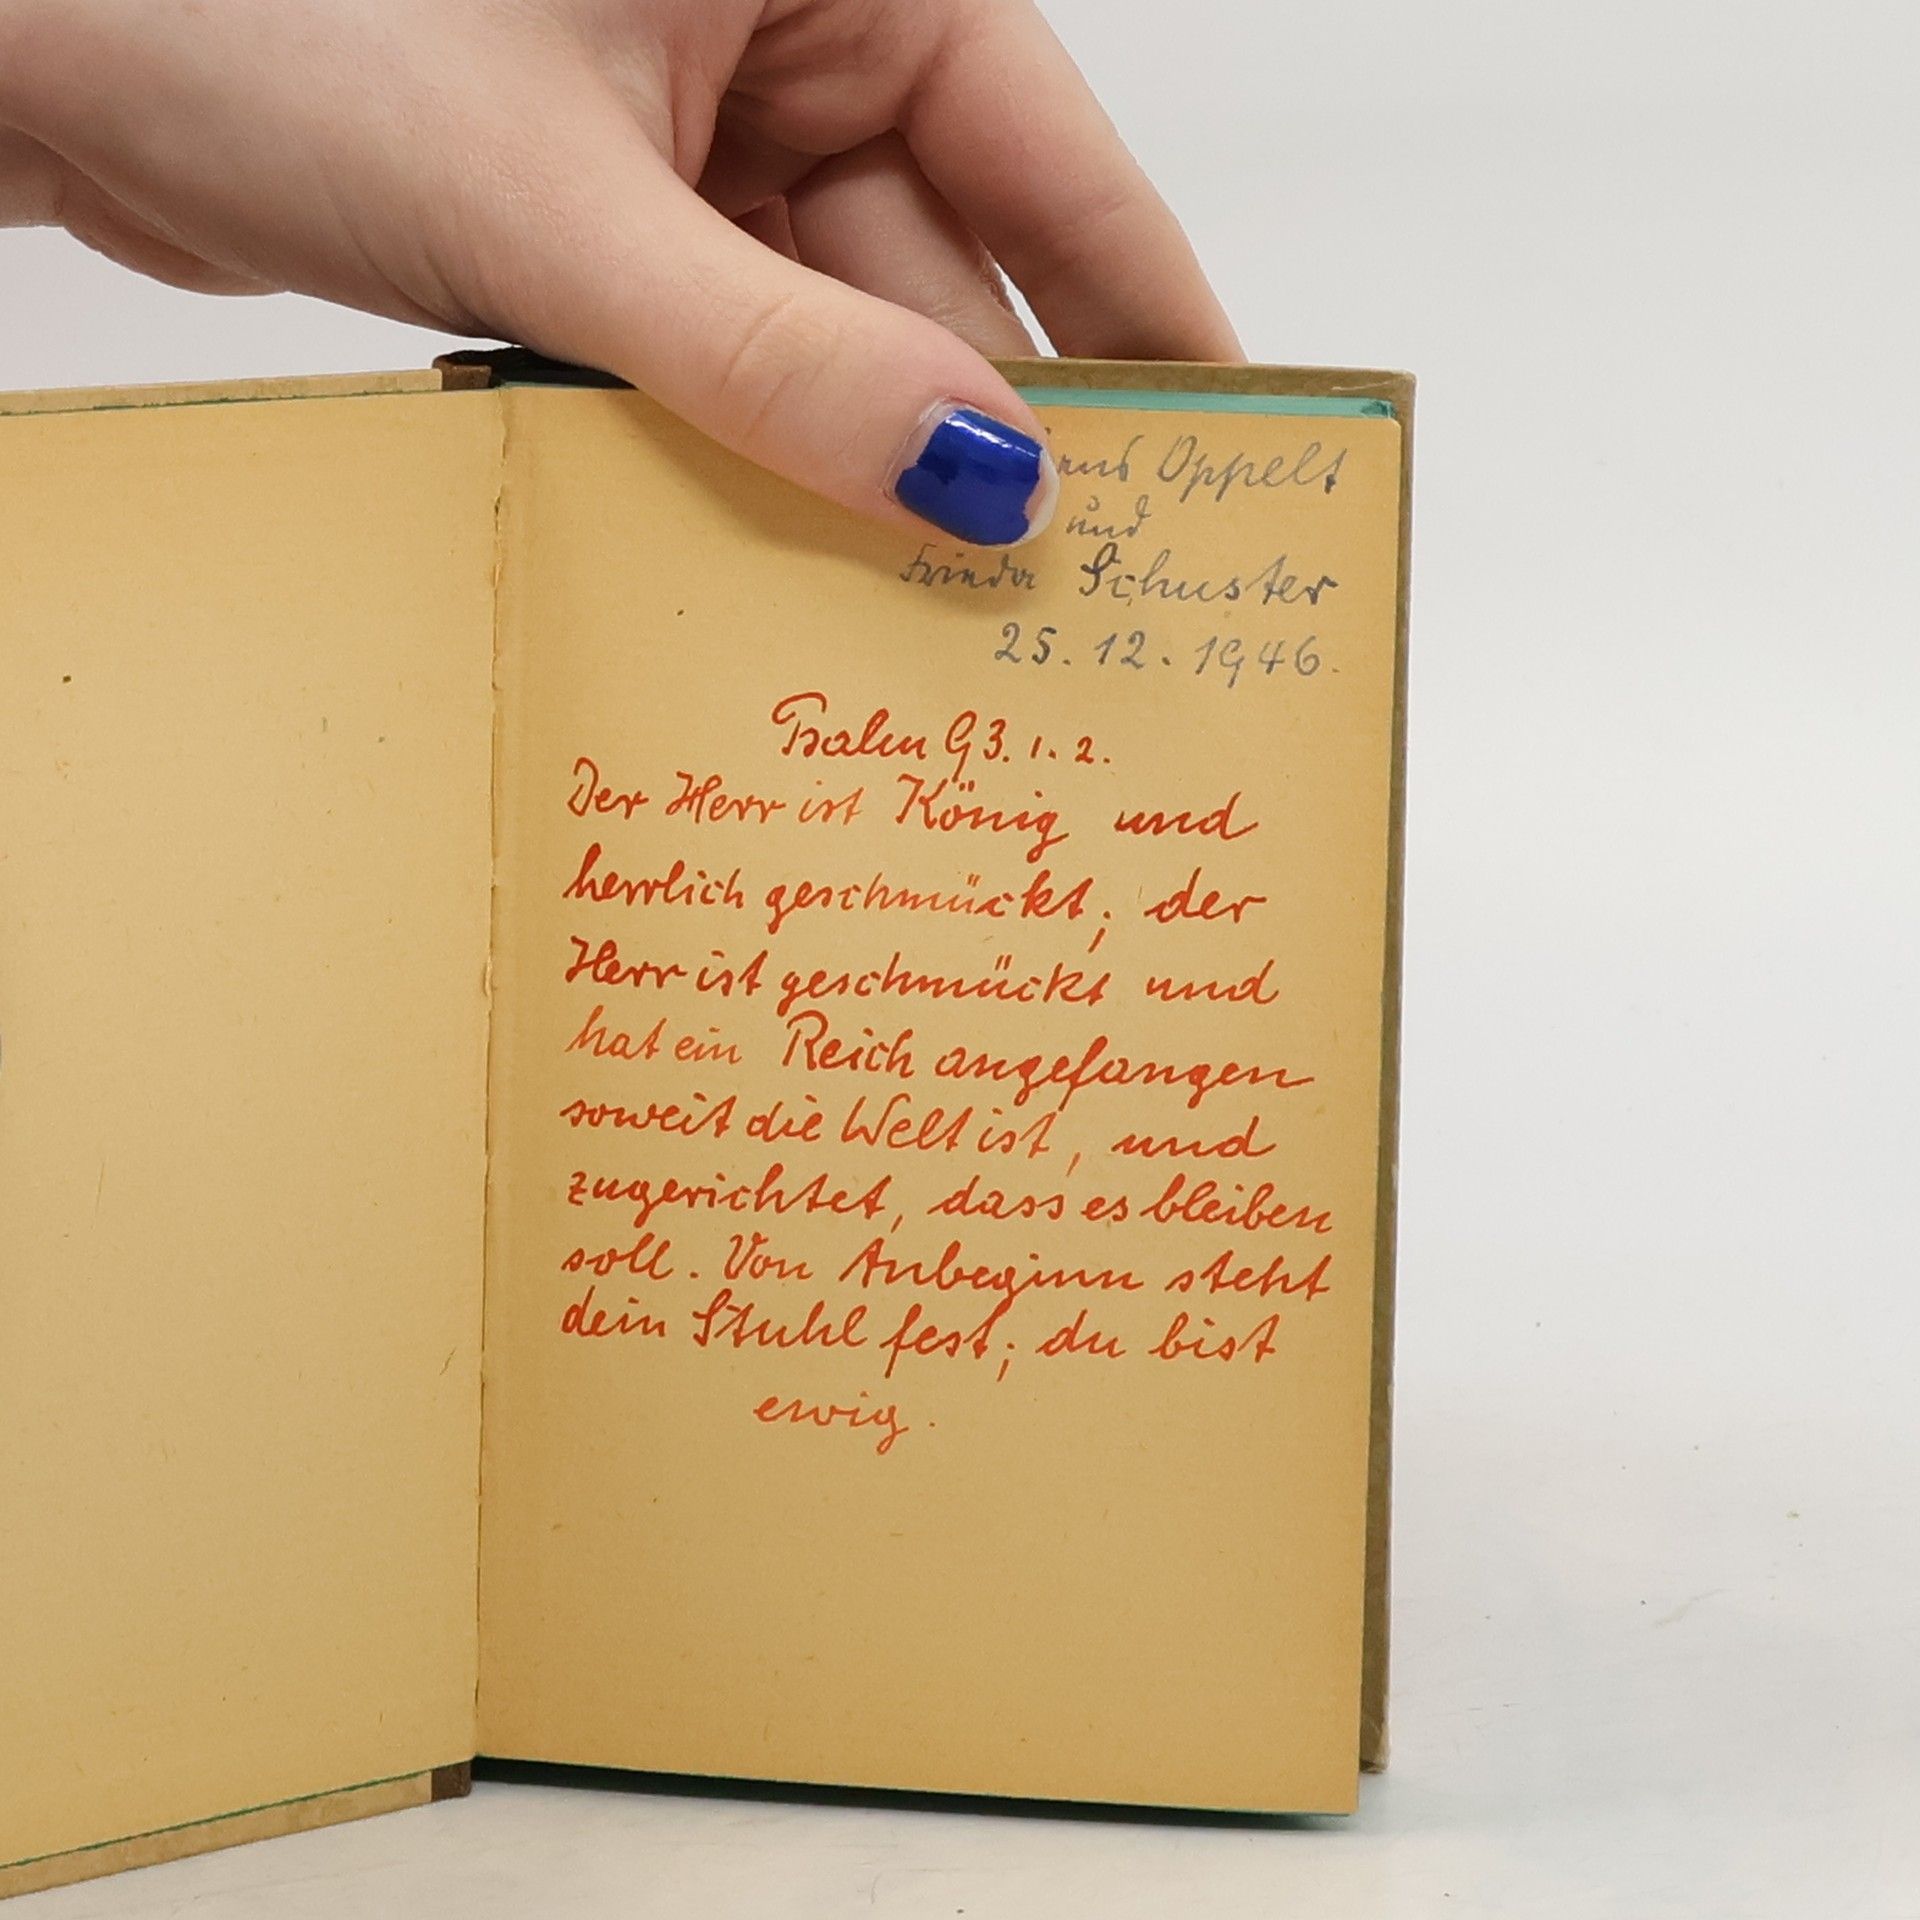 Oppelt
und
Frieda Schuster
25.12.1946.
Psalm 93.1.2.
Der Herr ist König und
herrlich geschmückt; der
Herr ist geschmückt und
hat ein Reich angefangen
soweit die Welt ist, und
zugerichtet, dass es bleiben
soll. Von Anbeginn steht
dein Stuhl fest; du bist
ewig.